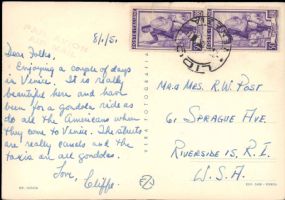 8/1/51
Dear Folks,
Enjoying a couple of days
in Venice. It is really
beautiful here and have
been for a gondola ride as
do all the Americans when
they come to Venice. The streets
are really canals and the
taxis are all gondolas.
Love,
Cliffe
VERA FOTOGRAFIA
MR & MRS. R.W. POST
61 SPRAGUE AVE.
RIVERSIDE 15, R.I.
U.S.A.